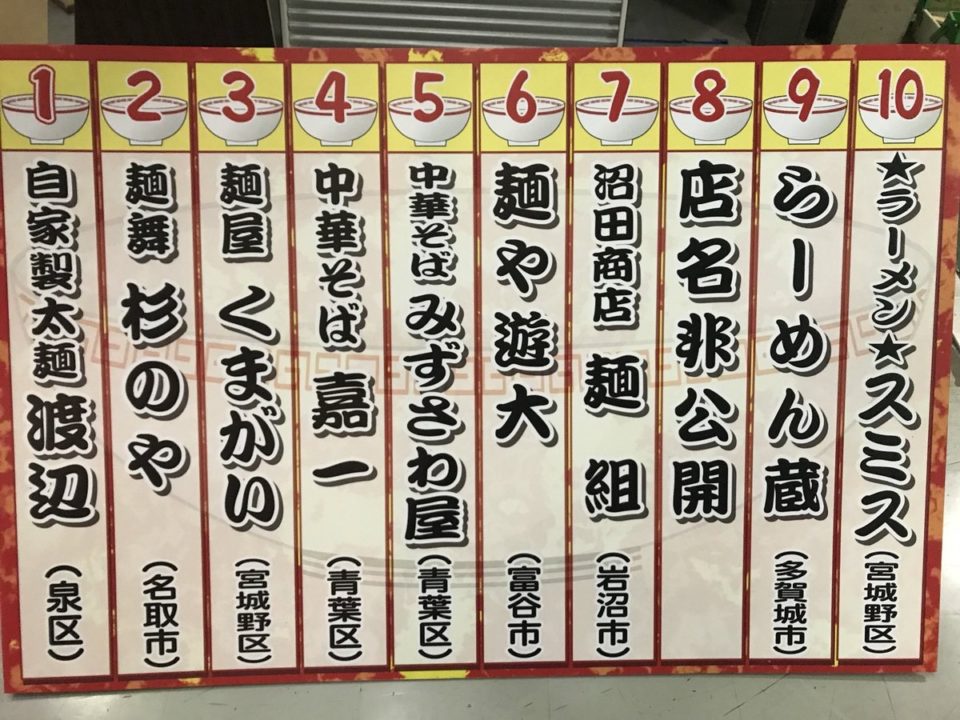 1
自家製太麺 渡辺
（泉区）
2
麺舞 杉のや
（名取市）
3
麺屋 くまがい
（宮城野区）
4
中華そば 嘉一
（青葉区）
5
中華そば みずさわ屋
（青葉区）
6
麺や遊大
（富谷市）
7
沼田商店 麺組
（岩沼市）
8
店名非公開
9
らーめん蔵
（多賀城市）
10
★ラーメン★スミス
（宮城野区）